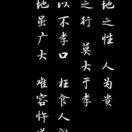 地之性 人为贵
之行 莫大于孝
以不孝口 枉食人
地虽广大 难容忤